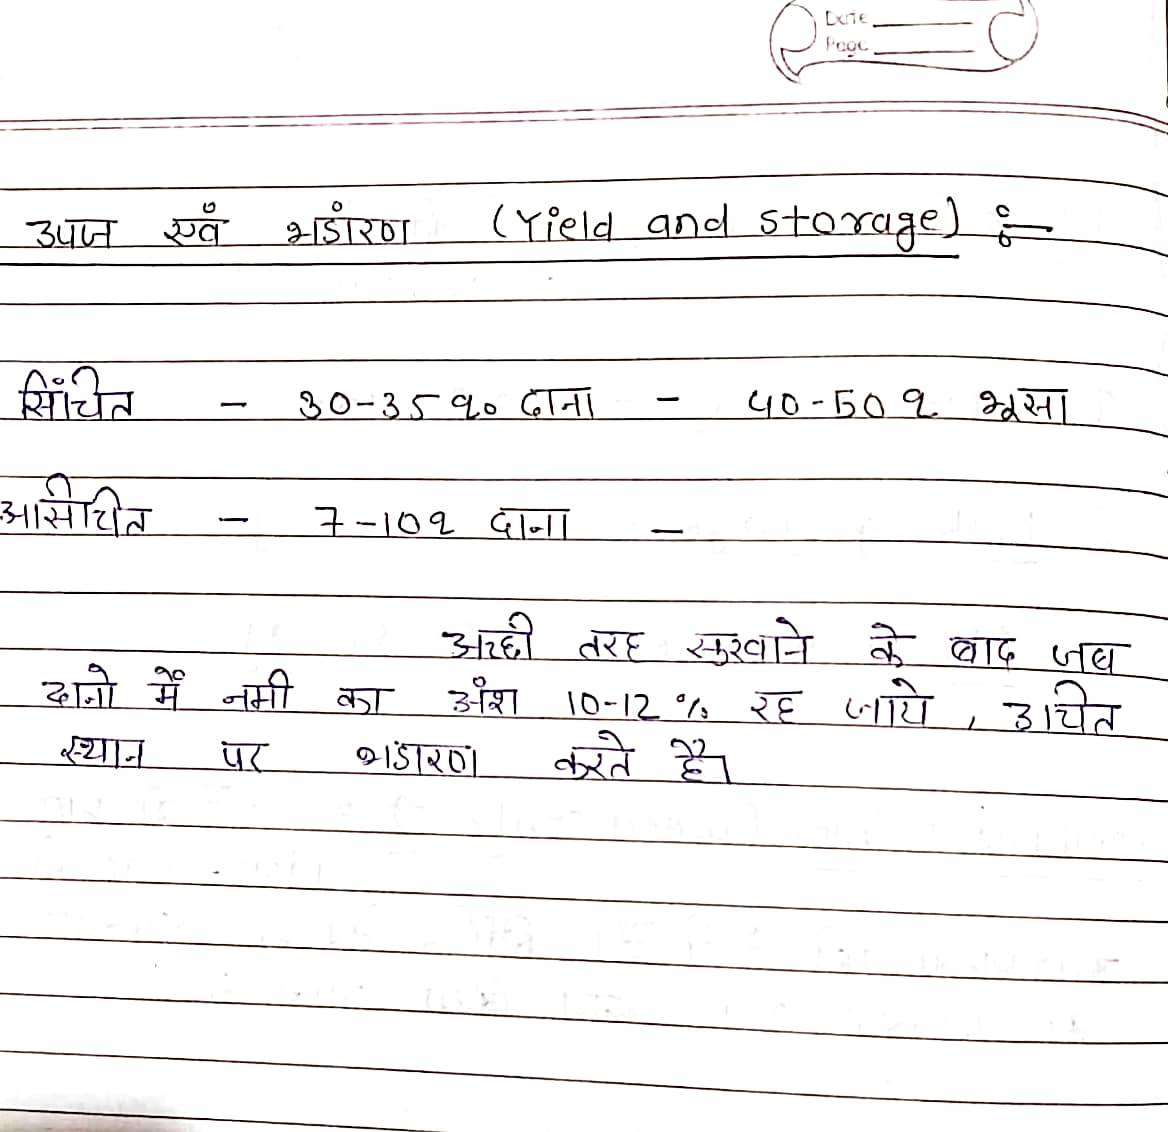 Date
Page
उपज एवं भडांरण (Yield and storage) :-
सिंचित - 30-35 q० दाना - 40-50 q भूसा
असिंचित - 7-10 q दाना -
अच्छी तरह सुखाने के बाद जब
दानो में नमी का अंश 10-12 % रह जाये , उचित
स्थान पर भडारण करते है।